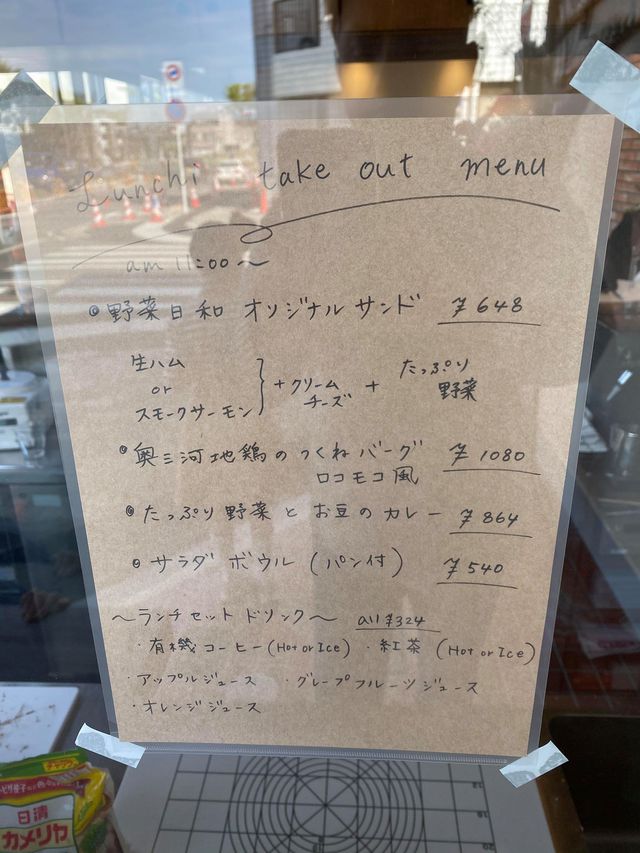 Lunchi take out menu
am 11:00～
◎野菜日和 オリジナルサンド ¥648
生ハム
or
スモークサーモン
+クリーム
チーズ
+
たっぷり
野菜
◎奥三河地鶏のつくねバーグ ¥1080
ロコモコ風
◎たっぷり野菜とお豆のカレー ¥864
◎サラダボウル (パン付) ¥540
～ランチセットドリンク～ all ¥324
・有機コーヒー(Hot or Ice) ・紅茶 (Hot or Ice)
・アップルジュース ・グレープフルーツジュース
・オレンジジュース
日清
カメリヤ